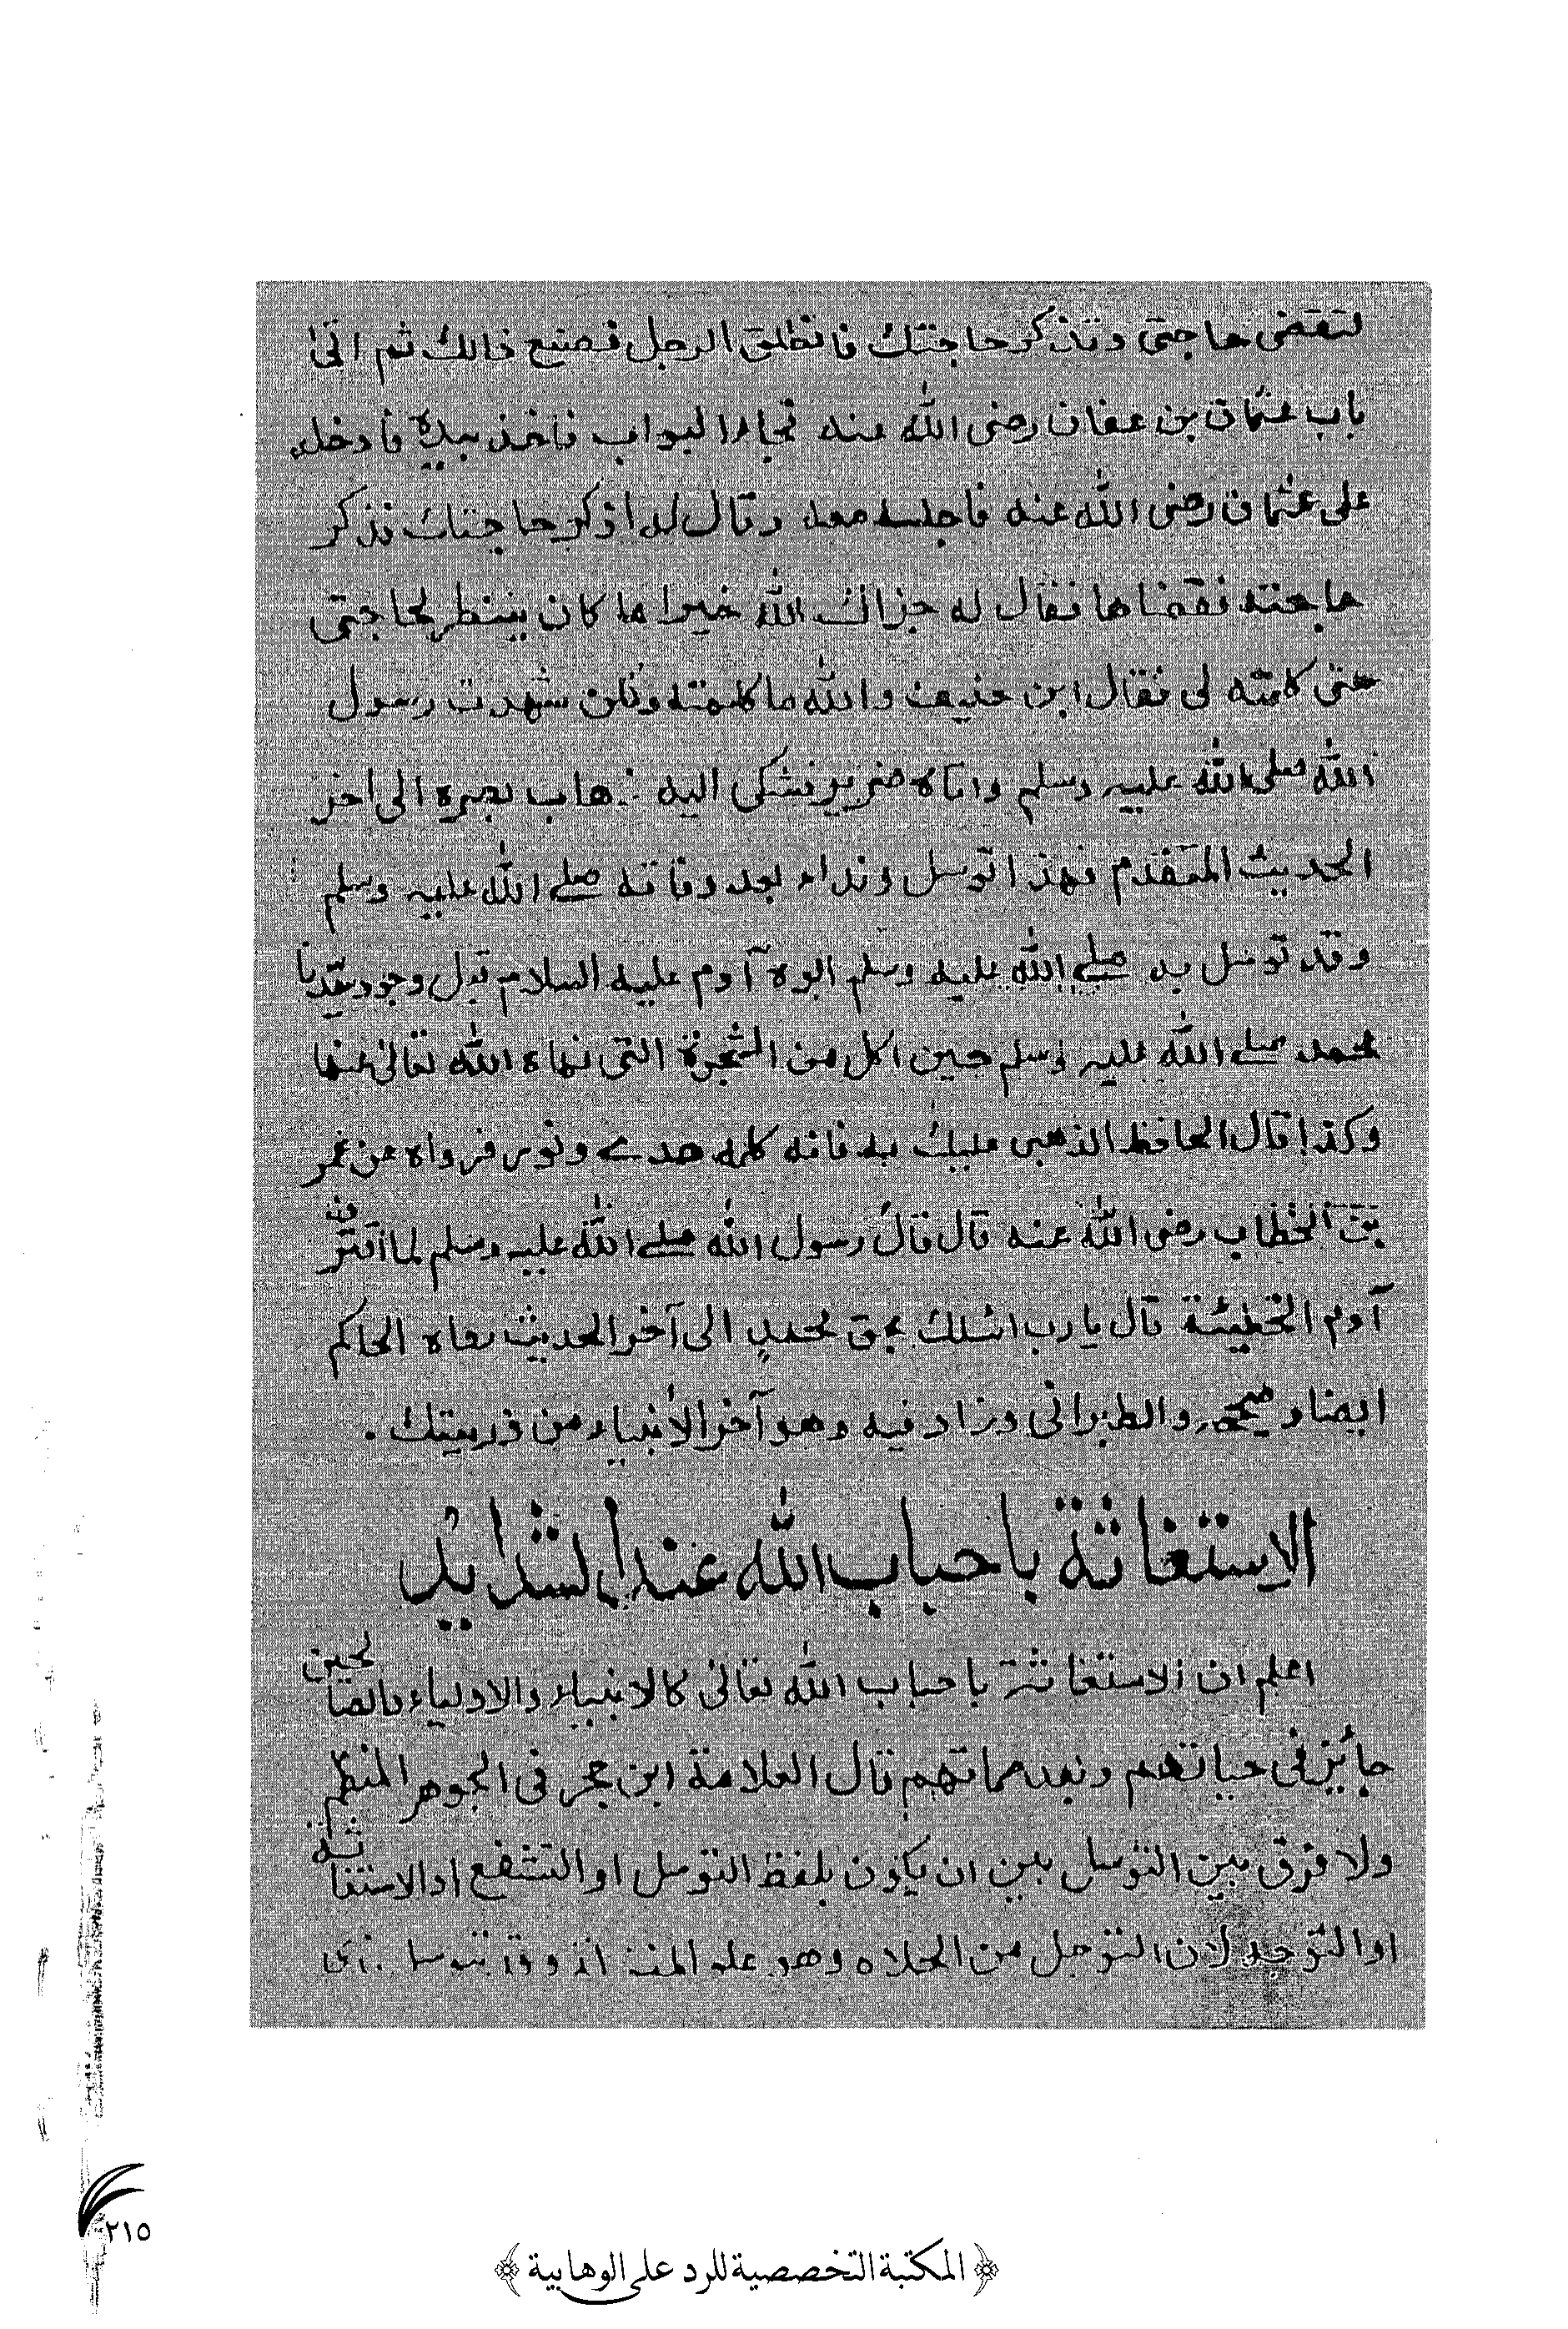 لتقضى حاجتى وتذكر حاجتك فانطلق الرجل فصنع ذالك ثم اتىٰ
باب عثمان بن عفان رضى الله عنه فجاءه البواب فاخذ بيده فادخله
على عثمان رضى الله عنه فاجلسه معه وقال له اذكر حاجتك فذكر
حاجته فقضاها فقال له جزاك الله خيرا ما كان ينظر لحاجتى
حتى كلمته لى فقال ابن حنيف والله ما كلمته ولكن شهدت رسول
الله صلى الله عليه وسلم واتاه ضرير فشكى اليه ذهاب بصره الى اخر
الحديث المتقدم فهذا توسل ونداء بعد وفاته صلے الله عليه وسلم
وقد توسل به صلے الله عليه وسلم ابوه آدم عليه السلام قبل وجود سيدنا
محمد صلے الله عليه وسلم حين اكل من الشجرة التى نهاه الله تعالىٰ عنها
وكذا قال الحافظ الذهبى عليك به فانه كله هدے ونور فرواه عن عمر
بن الخطاب رضى الله عنه قال قال رسول الله صلے الله عليه وسلم لما اقترف
آدم الخطيئة قال يا رب اسئلك بحق محمدٍ الى آخر الحديث رواه الحاكم
ايضا وصححه والطبرانى وزاد فيه وهو آخر الأنبياء من ذريتك .
الاستغاثة باحباب الله عند الشدائد
اعلم ان الاستغاثة باحباب الله تعالىٰ كالانبياء والاولياء والصالحين
جائز فى حياتهم وبعد مماتهم قال العلامة ابن حجر فى الجوهر المنظم
ولا فرق بين التوسل بين ان يكون بلفظ التوسل او التشفع او الاستغاثة
او التوجه لان التوجل من الجلاه وهو علو
٢١٥
﴿ المكتبة التخصصية للرد على الوهابية ﴾